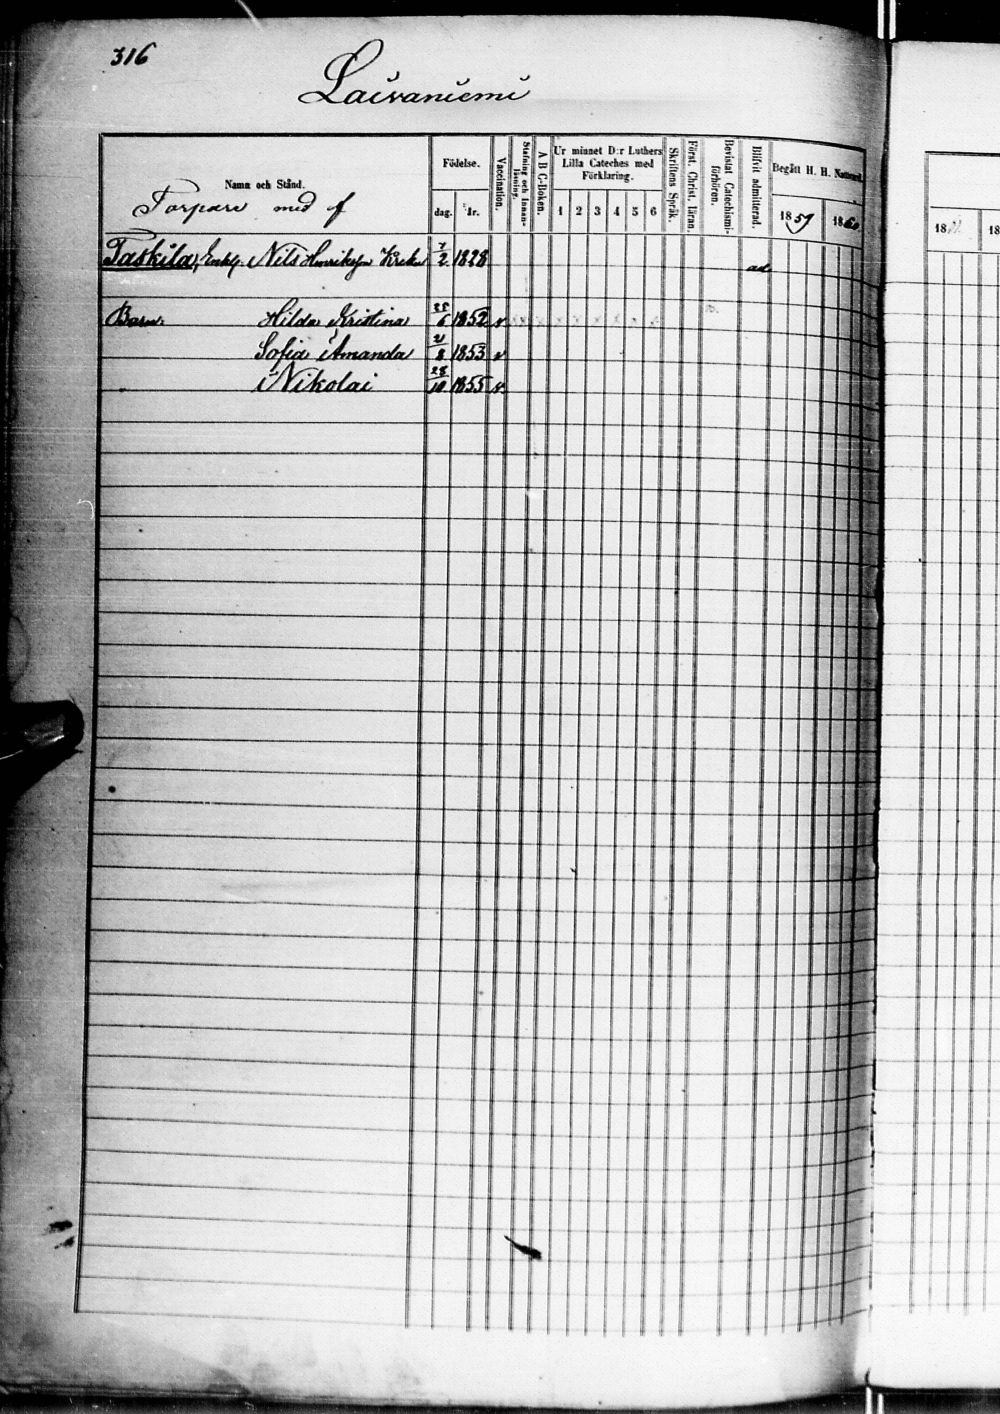 316
Laivaniemi
Namn och Stånd.
Torpare med f
Födelse.
dag. År.
Vaccination.
Stafning och Innan-läsning.
A B C-Boken.
Ur minnet D:r Luthers
Lilla Cateches med
Förklaring.
1 2 3 4 5 6
Skriftens Språk.
Först. Christ. läran.
Bevistat Catechismi-förhören.
Blifvit admitterad.
Begått H. H. Nattvard.
1859 1860
18 18
Taskila, Enkl. Nils Henriksson 7/2 1828 ad
Barn: Hilda Kristina 25/6 1852 v
Sofia Amanda 21/8 1853 v
Nikolai 28/10 1855 v